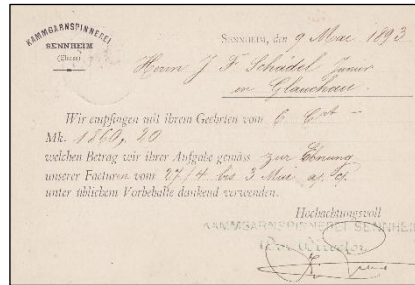 KAMMGARNSPINNEREI
SENNHEIM
(Elsass)
SENNHEIM, den 9 Mai 1893
Herrn J F Schädel Junior
in Glauchau.
Wir empfingen mit ihrem Geehrten vom 6 Crt -
Mk. 1860,20
welchen Betrag wir ihrer Aufgabe gemäss zur Ebnung
unserer Facturen vom 27/4 bis 3 Mai a/c.
unter üblichem Vorbehalte dankend verwenden.
Hochachtungsvoll
KAMMGARNSPINNEREI SENNHEIM
Der Director